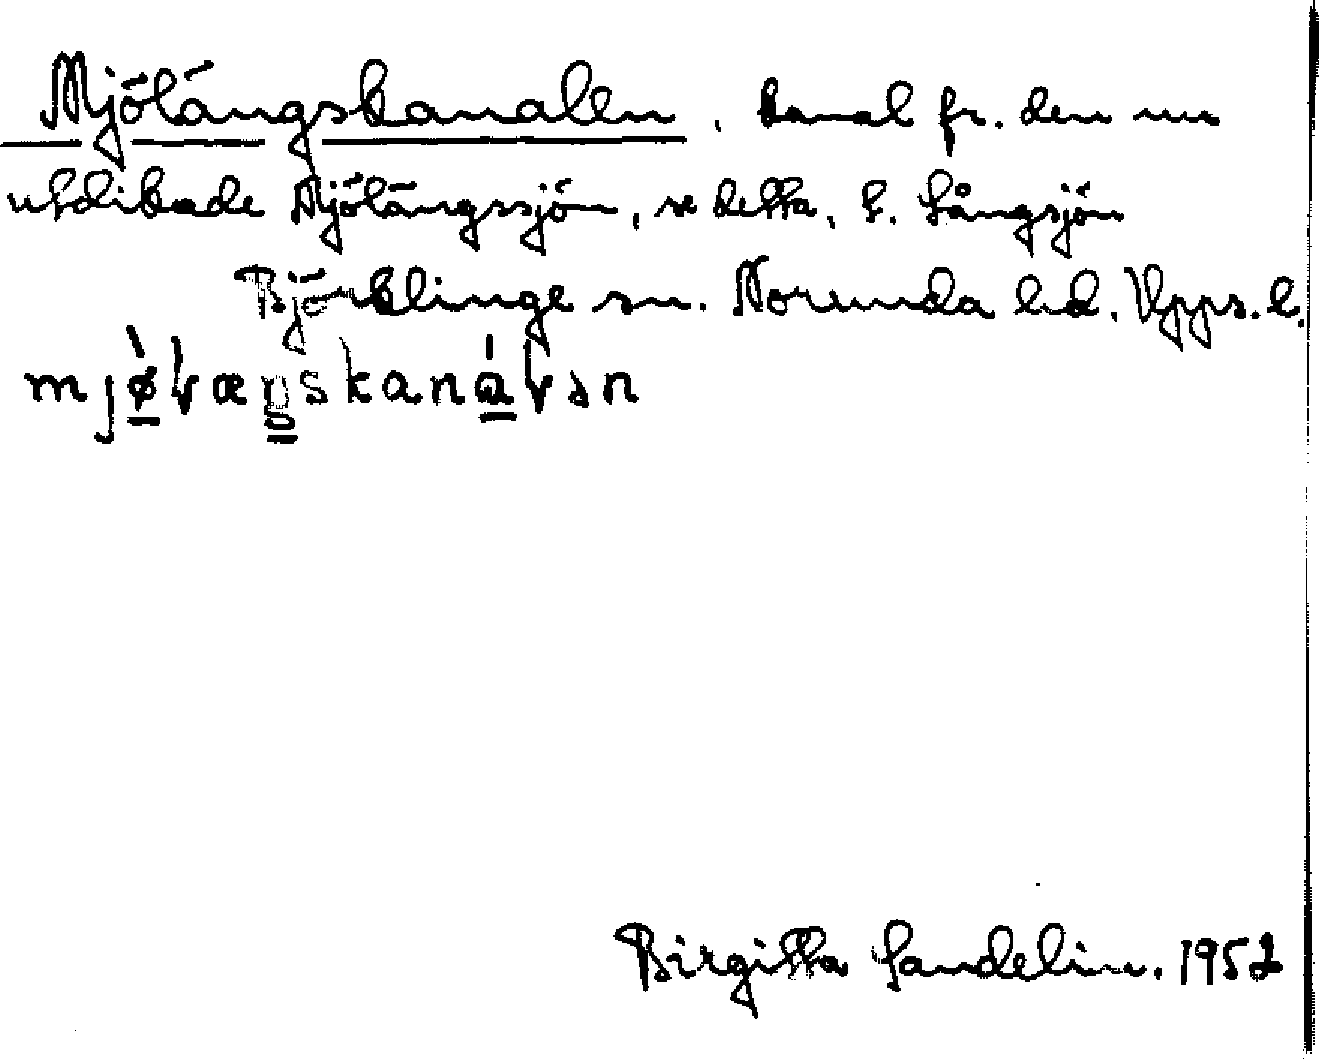 Mjölängskanalen, kanal fr. den nu
utdikade Mjölängssjön, se detta, t. Långsjön
Björklinge sn. Norunda hd. Upps. l.
Birgitta Sandelin. 1952